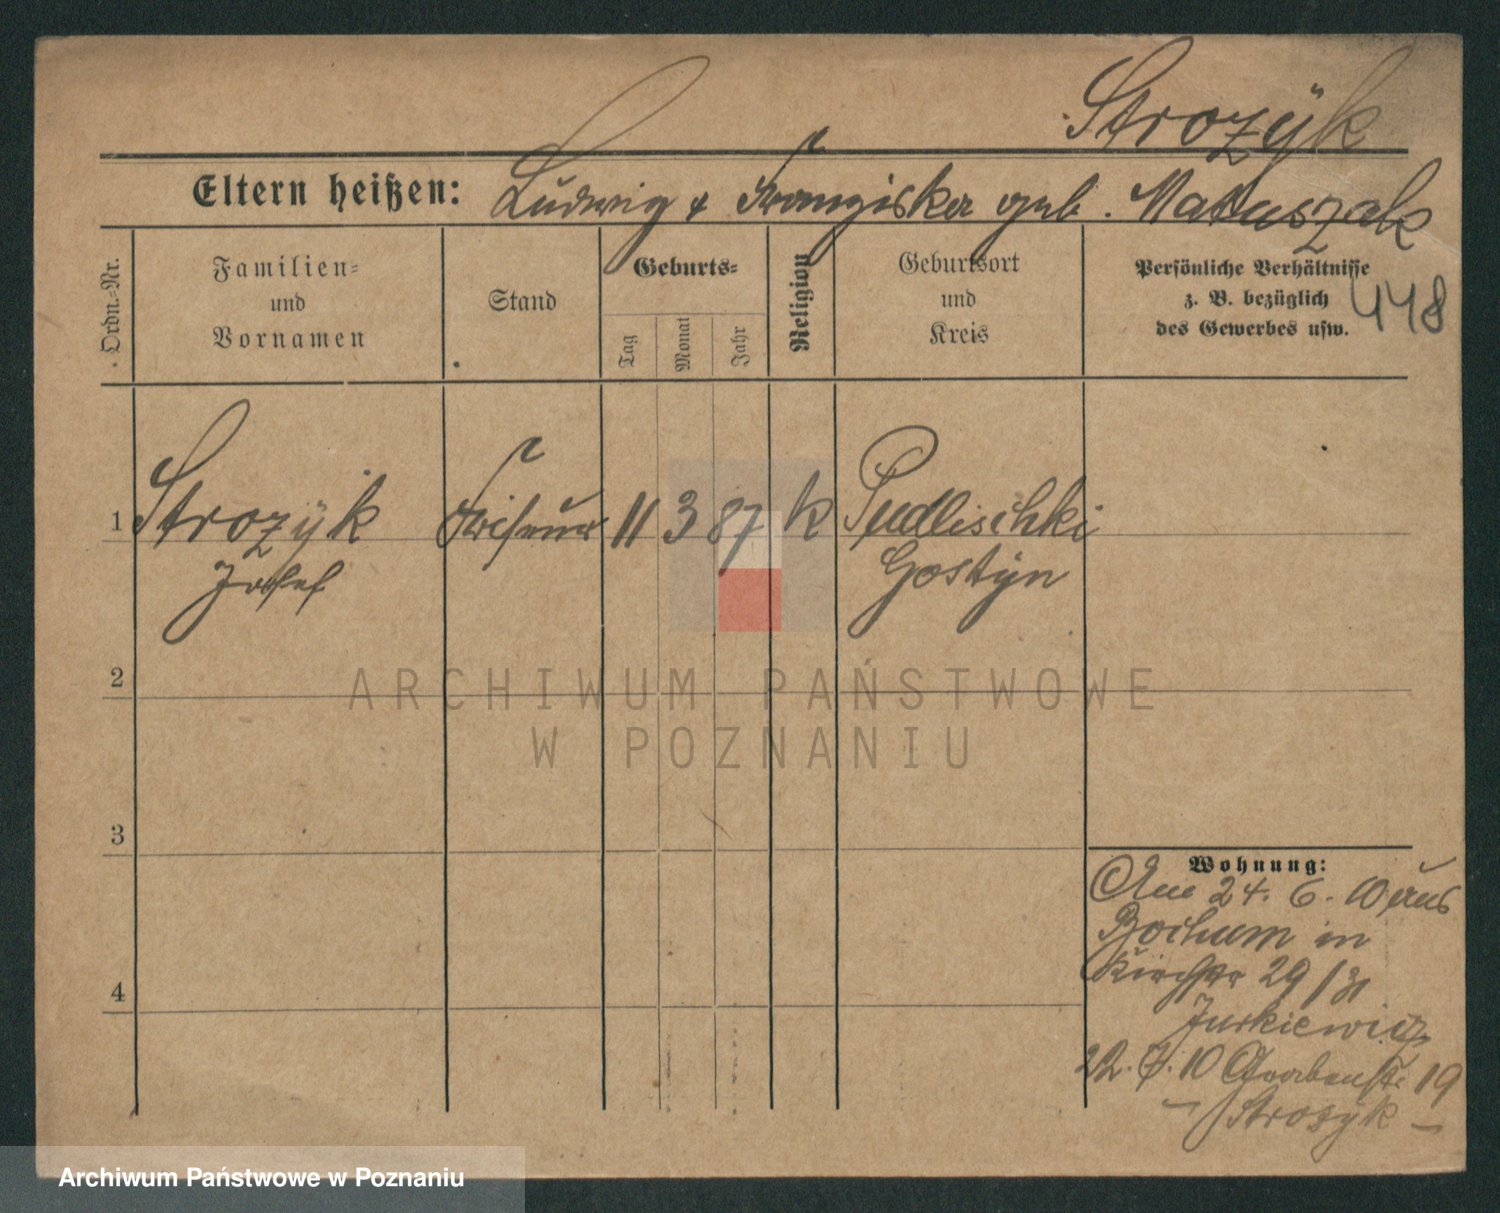 Strozÿk
Eltern heißen: Ludwig & Franziska geb. Matuszak
Ordn.-Nr.
Familien-
und
Vornamen
Stand
Geburts-
Tag
Monat
Jahr
Religion
Geburtsort
und
Kreis
Persönliche Verhältnisse
z. B. bezüglich
des Gewerbes usw.
448
1 Strozÿk Friseur 11 3 87 k Pudlischki
Josef Gostÿn
2
ARCHIWUM PAŃSTWOWE
W POZNANIU
3
Wohnung:
Am 24. 6. 10 aus
Bochum in
Kirchstr 29/31
Jurkiewicz
22. 7. 10 Grabenstr. 19
– Strozyk –
4
Archiwum Państwowe w Poznaniu